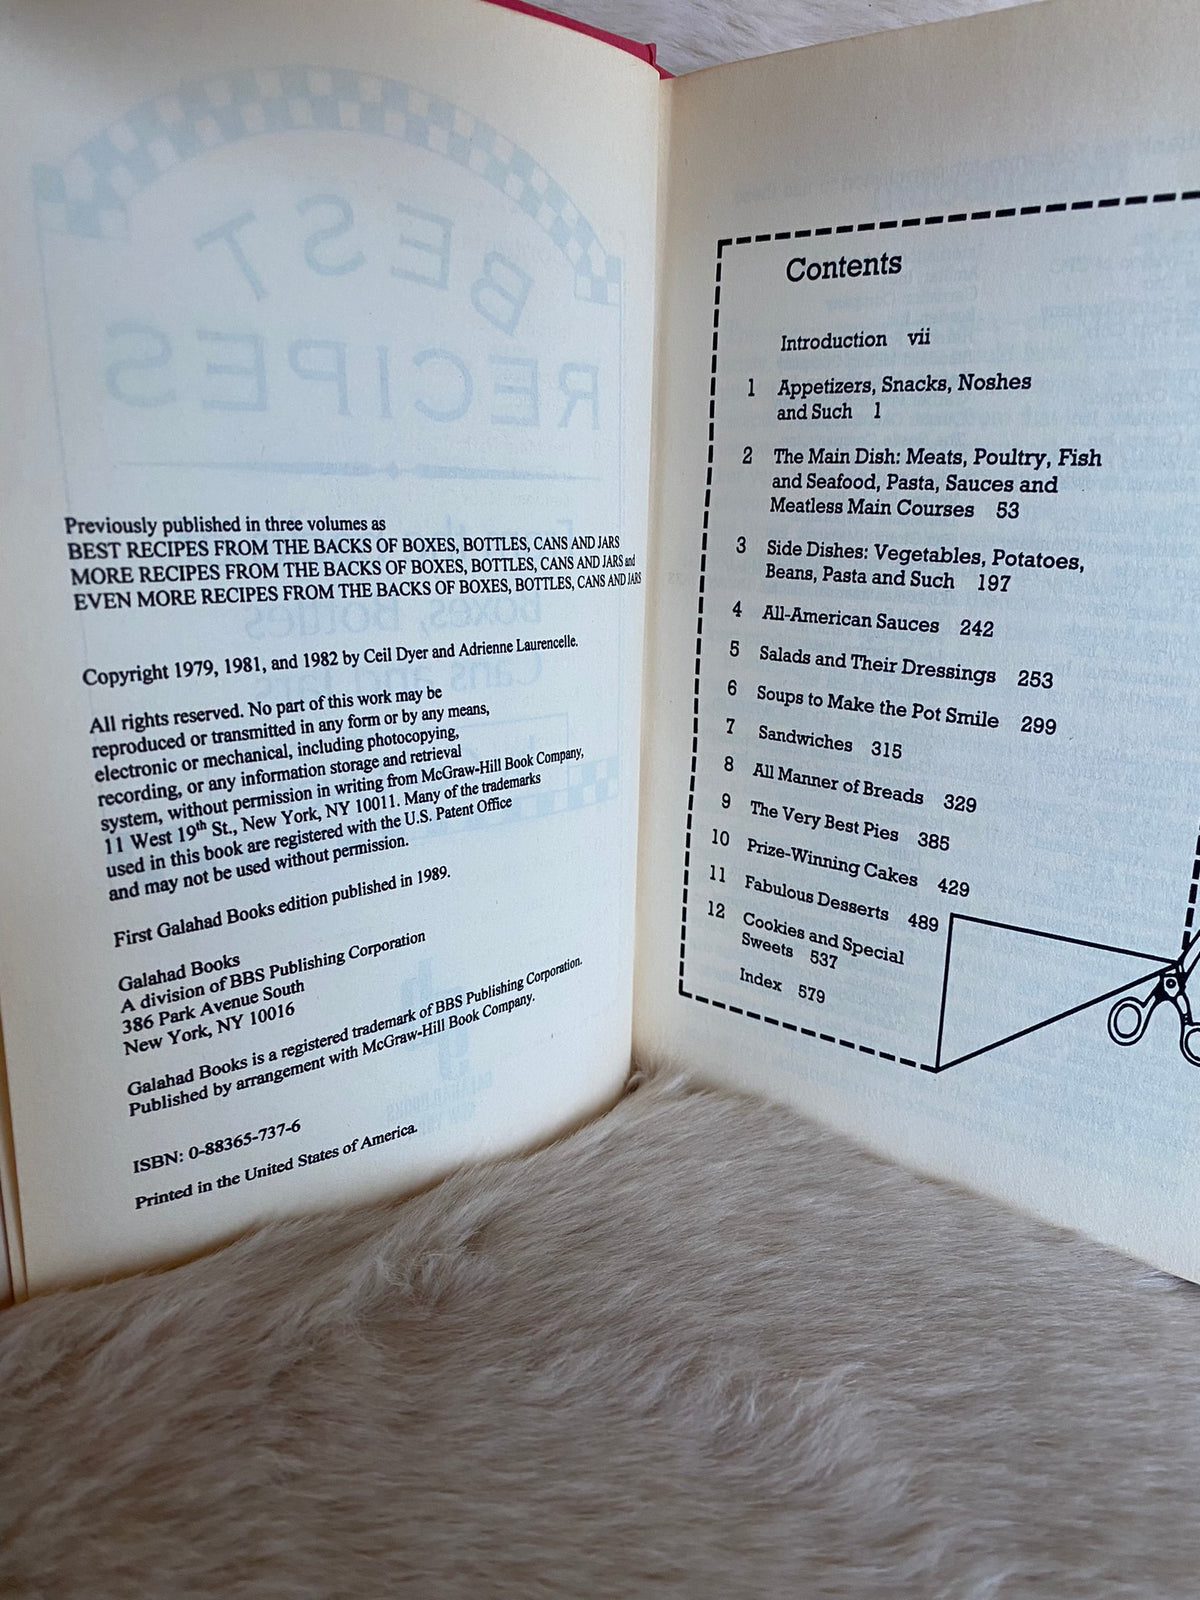 BEST
RECIPES
Previously published in three volumes as
BEST RECIPES FROM THE BACKS OF BOXES, BOTTLES, CANS AND JARS
MORE RECIPES FROM THE BACKS OF BOXES, BOTTLES, CANS AND JARS and
EVEN MORE RECIPES FROM THE BACKS OF BOXES, BOTTLES, CANS AND JARS
Copyright 1979, 1981, and 1982 by Ceil Dyer and Adrienne Laurencelle.
All rights reserved. No part of this work may be
reproduced or transmitted in any form or by any means,
electronic or mechanical, including photocopying,
recording, or any information storage and retrieval
system, without permission in writing from McGraw-Hill Book Company,
11 West 19th St., New York, NY 10011. Many of the trademarks
used in this book are registered with the U.S. Patent Office
and may not be used without permission.
First Galahad Books edition published in 1989.
Galahad Books
A division of BBS Publishing Corporation
386 Park Avenue South
New York, NY 10016
Galahad Books is a registered trademark of BBS Publishing Corporation.
Published by arrangement with McGraw-Hill Book Company.
ISBN: 0-88365-737-6
Printed in the United States of America.
Contents
Introduction vii
1 Appetizers, Snacks, Noshes
and Such 1
2 The Main Dish: Meats, Poultry, Fish
and Seafood, Pasta, Sauces and
Meatless Main Courses 53
3 Side Dishes: Vegetables, Potatoes,
Beans, Pasta and Such 197
4 All-American Sauces 242
5 Salads and Their Dressings 253
6 Soups to Make the Pot Smile 299
7 Sandwiches 315
8 All Manner of Breads 329
9 The Very Best Pies 385
10 Prize-Winning Cakes 429
11 Fabulous Desserts 489
12 Cookies and Special
Sweets 537
Index 579